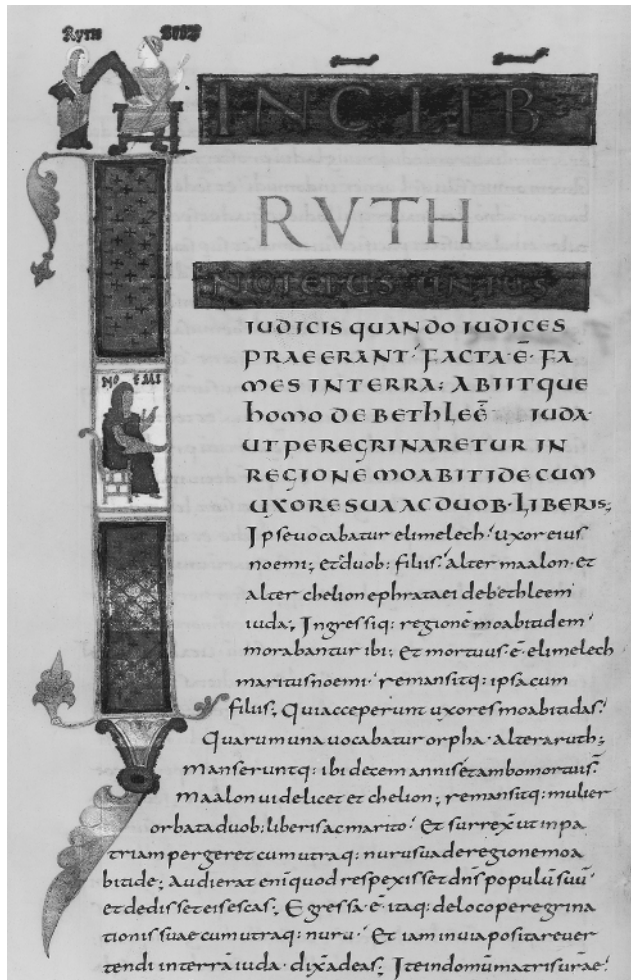 RUTH BOOZ
INC LIB
RVTH
IN DIEBUS UNIUS
IUDICIS QUANDO IUDICES
PRAEERANT· FACTA Ē· FA
MES IN TERRA: ABIITQUE
homo DE BETHLEĒ IUDA·
UT PEREGRINARETUR IN
REGIONE MOABITIDE CUM
UXORE SUA AC DUOB· LIBERIS;
NOEMI
Ipse vocabatur elimelech· uxor eius
noemi; et duob: filiis· alter maalon· et
alter chelion ephrataei de bethleem
iuda; Ingressiq: regionē moabitidem
morabantur ibi; Et mortuus· ē· elimelech
maritus noemi· remansitq: ipsa cum
filiis; Qui acceperunt uxores moabitidas·
Quarum una vocabatur orpha· altera ruth;
Manseruntq: ibi decem annis et ambo mortui s̄·
Maalon videlicet et chelion; remansitq: mulier
orbata duob: liberis ac marito· Et surrex̄ ut in pa
triam pergeret cum utraq: nuru sua de regione moa
bitide; Audierat enī quod respexisset dn̄s populū suū·
et dedisset eis escas; Egressa· ē· itaq: de loco peregrina
tionis suae cum utraq: nuru· Et iam in via posita rever
tendi in terrā iuda· dix̄ ad eas; Ite in domū matris v̄rae·